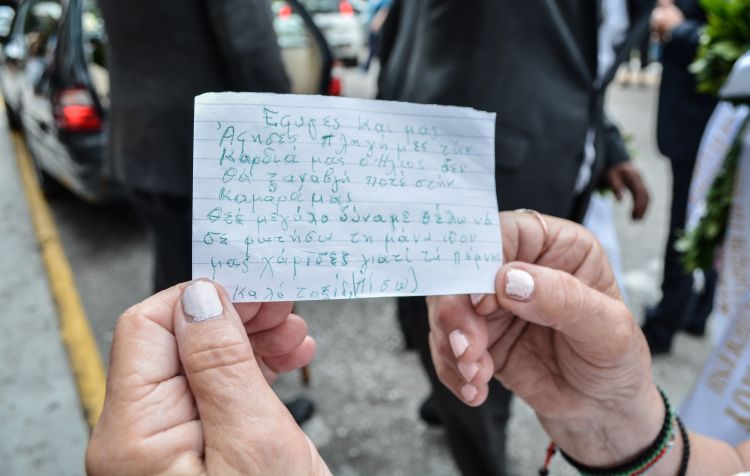 Εφυγες Και μας
Άφησες πληγή μες την
Καρδιά μας ο Ήλιος δεν
θα ξαναβγή ποτέ στην
Καμαρά μας
Θεέ μεγάλο δύναμε θέλω να
σε ρωτήσω τη μάνα που
μας χάρισες γιατί τη πέρνης
Καλό ταξίδι πίσω)